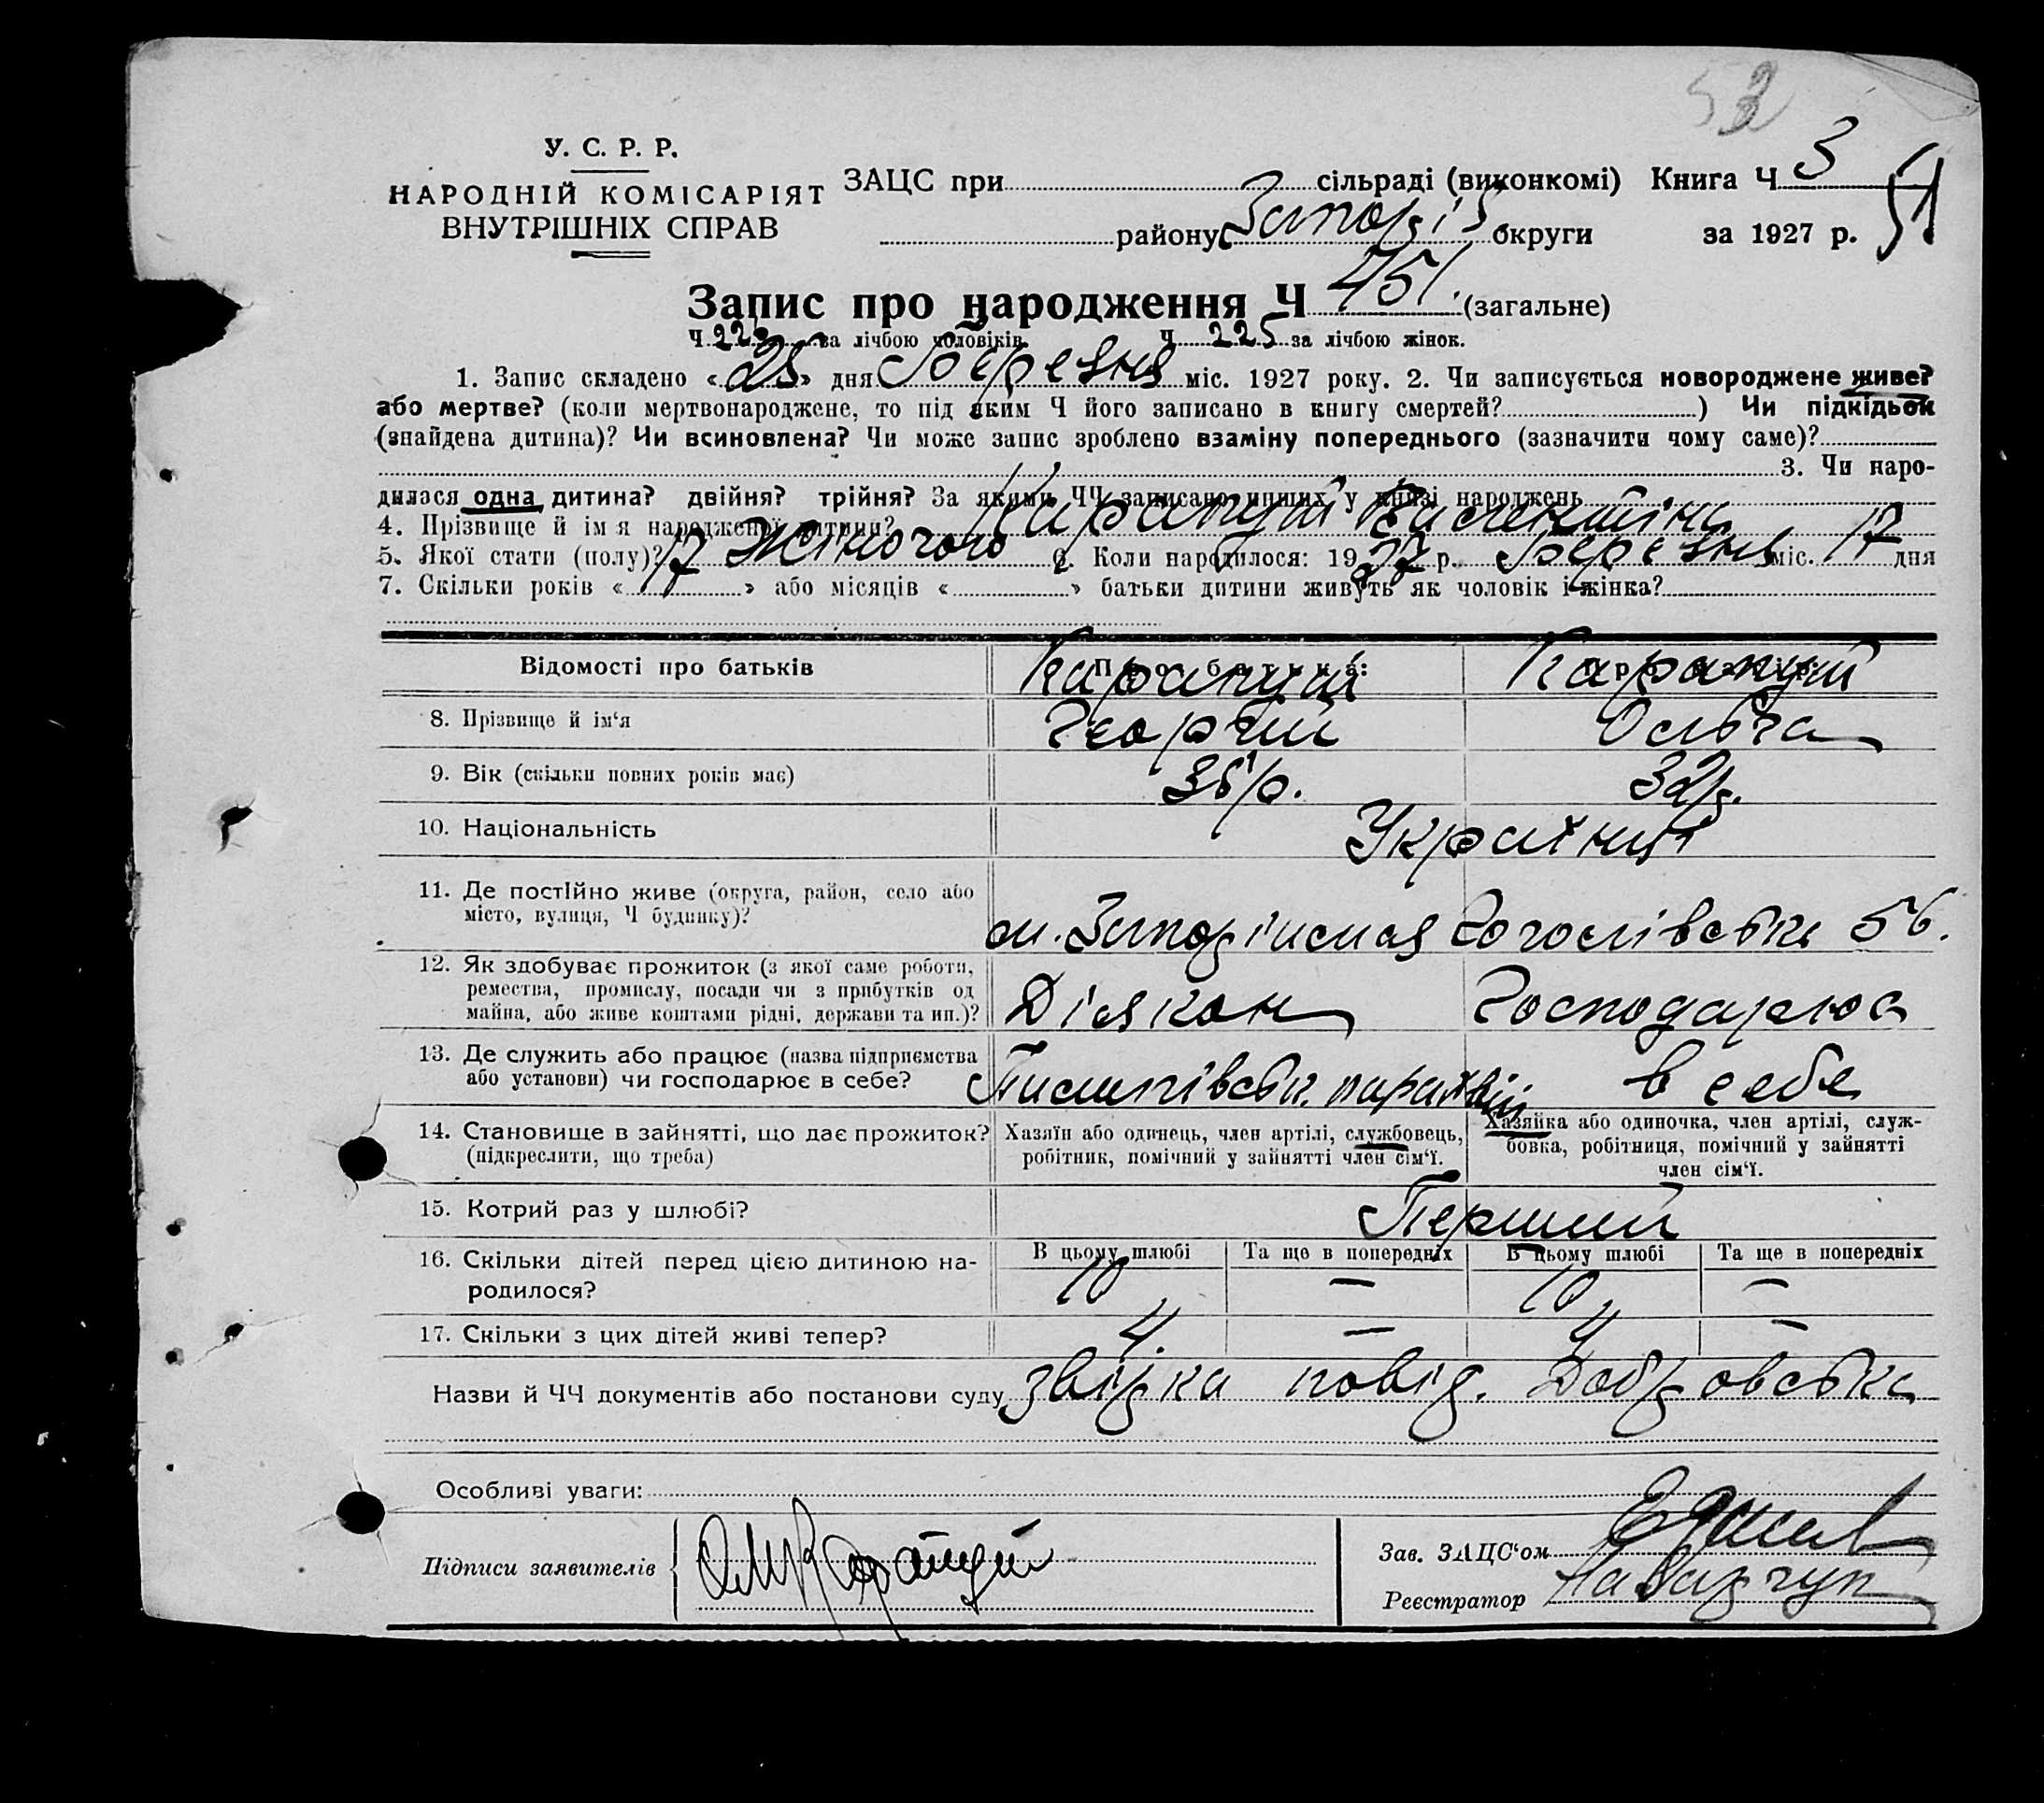 53
У. С. Р. Р.
НАРОДНІЙ КОМІСАРІЯТ
ВНУТРІШНІХ СПРАВ
ЗАЦС при сільраді (виконкомі) Книга Ч 3
51
району Запоріз округи за 1927 р.
Запис про народження Ч 451. (загальне)
Ч за лічбою чоловіків Ч 225 за лічбою жінок.
1. Запис складено «25» дня Березня міс. 1927 року. 2. Чи записується новороджене живе?
або мертве? (коли мертвонароджене, то під яким Ч його записано в книгу смертей? ) Чи підкідьок
(знайдена дитина)? Чи всиновлена? Чи може запис зроблено взаміну попереднього (зазначити чому саме)?
3. Чи наро-
дилася одна дитина? двійня? трійня? За якими ЧЧ записано инших у книзі народжень
4. Прізвище й ім'я народженої дитини? Карапуш Валентіна
5. Якої стати (полу)? Жіночого 6. Коли народилося: 1927 р. Березня міс. 17 дня
7. Скільки років «17» або місяців « » батьки дитини живуть як чоловік і жінка?
Відомості про батьків Про батька:
Карапуш Карапуш
8. Прізвище й ім'я Георгій Ольга
9. Вік (скільки повних років має) 36 р. 32 р.
10. Національність Українці
11. Де постійно живе (округа, район, село або
місто, вулиця, Ч будинку)? м. Запоріжжя Гоголівська 56.
12. Як здобуває прожиток (з якої саме роботи,
ремества, промислу, посади чи з прибутків од
майна, або живе коштами рідні, держави та ин.)? Діякон Господарює
13. Де служить або працює (назва підприємства
або установи) чи господарює в себе? парахвії в себе
14. Становище в зайнятті, що дає прожиток?
(підкреслити, що треба)
Хазяїн або одинець, член артілі, службовець,
робітник, помічний у зайнятті член сім'ї.
Хазяйка або одиночка, член артілі, служ-
бовка, робітниця, помічний у зайнятті
член сім'ї.
15. Котрий раз у шлюбі? Перший
16. Скільки дітей перед цією дитиною на-
родилося?
В цьому шлюбі Та ще в попередніх В цьому шлюбі Та ще в попередніх
10 — 10 —
17. Скільки з цих дітей живі тепер? 4 — 4 —
Назви й ЧЧ документів або постанови суду звірка повід.
Особливі уваги:
Підписи заявителів
Зав. ЗАЦС'ом
Реєстратор